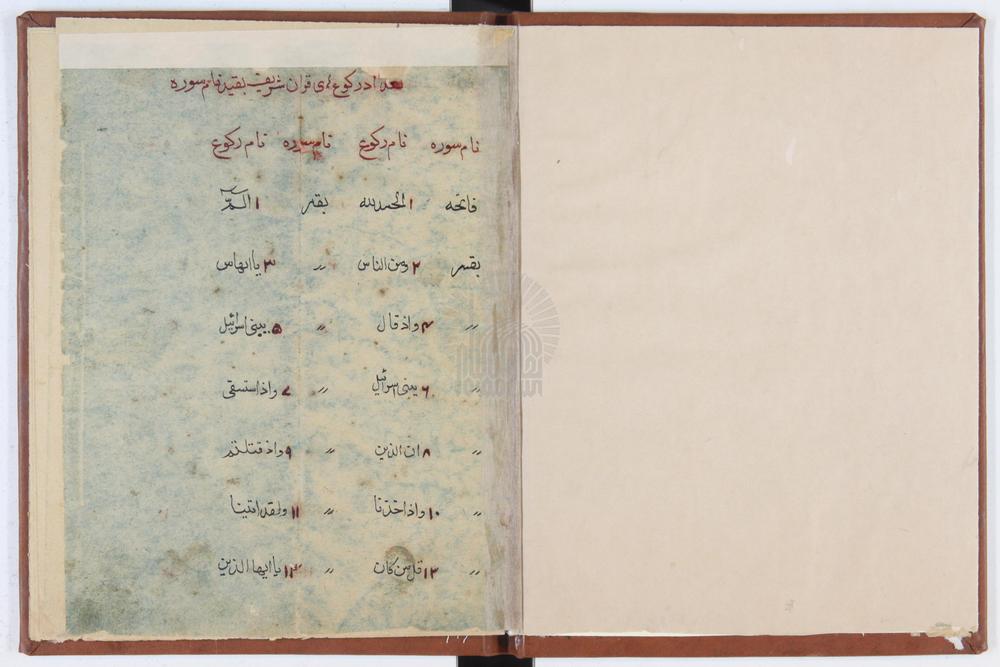 تعداد رکوع های قران شریف بقید نام سوره
نام سوره نام رکوع نام سوره نام رکوع
فاتحه ۱ الحمدلله بقره ۱ الـمّ
بقره ۲ ومن الناس 〃 ۳ یا ایهاس
〃 ۴ واذ قال 〃 ۵ یبنی اسرائیل
〃 ۶ یبنی اسرائیل 〃 ۷ واذ استسقی
〃 ۸ ان الذین 〃 ۹ واذ قتلتم
〃 ۱۰ واذ اخذنا 〃 ۱۱ ولقد اتینا
〃 ۱۲ قل من کان 〃 ۱۳ یا ایها الذین